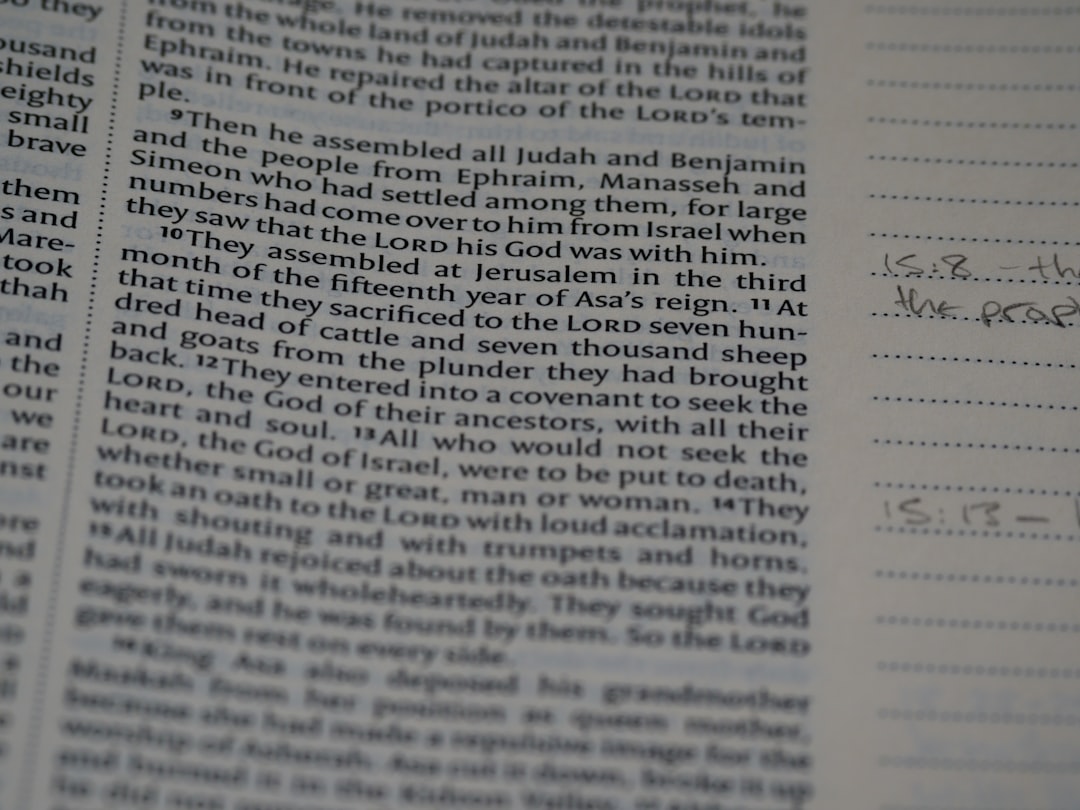 o they
ousand
shields
eighty
small
brave
them
s and
Mare-
took
thah
and
the
our
we
are
nst
ore
nd
a
the prophet, he
. He removed the detestable idols
from the whole land of Judah and Benjamin and
from the towns he had captured in the hills of
Ephraim. He repaired the altar of the LORD that
was in front of the portico of the LORD's tem-
ple.
9 Then he assembled all Judah and Benjamin
and the people from Ephraim, Manasseh and
Simeon who had settled among them, for large
numbers had come over to him from Israel when
they saw that the LORD his God was with him.
10 They assembled at Jerusalem in the third
month of the fifteenth year of Asa's reign. 11 At
that time they sacrificed to the LORD seven hun-
dred head of cattle and seven thousand sheep
and goats from the plunder they had brought
back. 12 They entered into a covenant to seek the
LORD, the God of their ancestors, with all their
heart and soul. 13 All who would not seek the
LORD, the God of Israel, were to be put to death,
whether small or great, man or woman. 14 They
took an oath to the LORD with loud acclamation,
with shouting and with trumpets and horns.
15 All Judah rejoiced about the oath because they
had sworn it wholeheartedly. They sought God
eagerly, and he was found by them. So the LORD
gave them rest on every side.
16 King Asa also deposed his grandmother
Maakah from her position as queen mother,
because she had made a repulsive image for the
worship of Asherah. Asa cut it down, broke it up
and burned it in the Kidron Valley.
he did not
15:8 - th
the prop
15:13 -